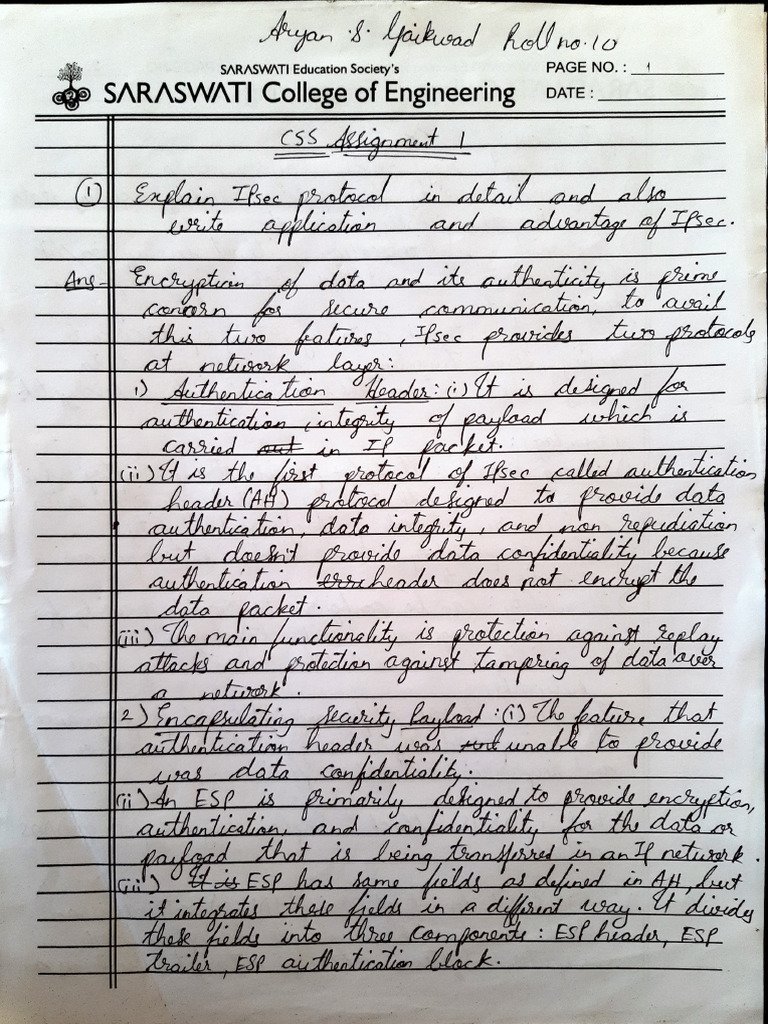 Aryan .S. Gaikwad Roll no.10
SARASWATI Education Society's
SARASWATI College of Engineering
PAGE NO. : 1
DATE :
CSS Assignment 1
(1) Explain IPsec protocol in detail and also
write application and advantage of IPsec.
Ans- Encryption of data and its authenticity is prime
concern for secure communication, to avail
this two features, IPsec provides two protocols
at network layer:
1) Authentication Header: (i) It is designed for
authentication, integrity of payload which is
carried out in IP packet.
(ii) It is the first protocol of IPsec called authentication
header (AH) protocol designed to provide data
authentication, data integrity, and non repudiation
but doesn't provide data confidentiality because
authentication header does not encrypt the
data packet.
(iii) The main functionality is protection against replay
attacks and protection against tampering of data over
a network.
2) Encapsulating Security Payload: (i) The feature that
authentication header was unable to provide
was data confidentiality.
(ii) An ESP is primarily designed to provide encryption,
authentication, and confidentiality for the data or
payload that is being transferred in an IP network.
(iii) It is ESP has same fields as defined in AH, but
it integrates these fields in a different way. It divides
these fields into three components: ESP header, ESP
trailer, ESP authentication block.